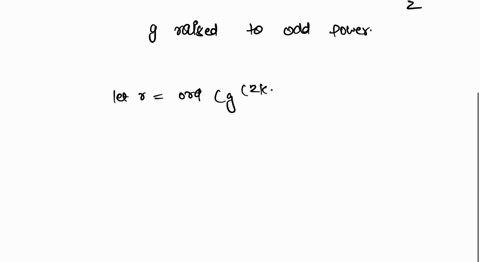 2
g raised to odd power.
let r = ord (g^(2k.